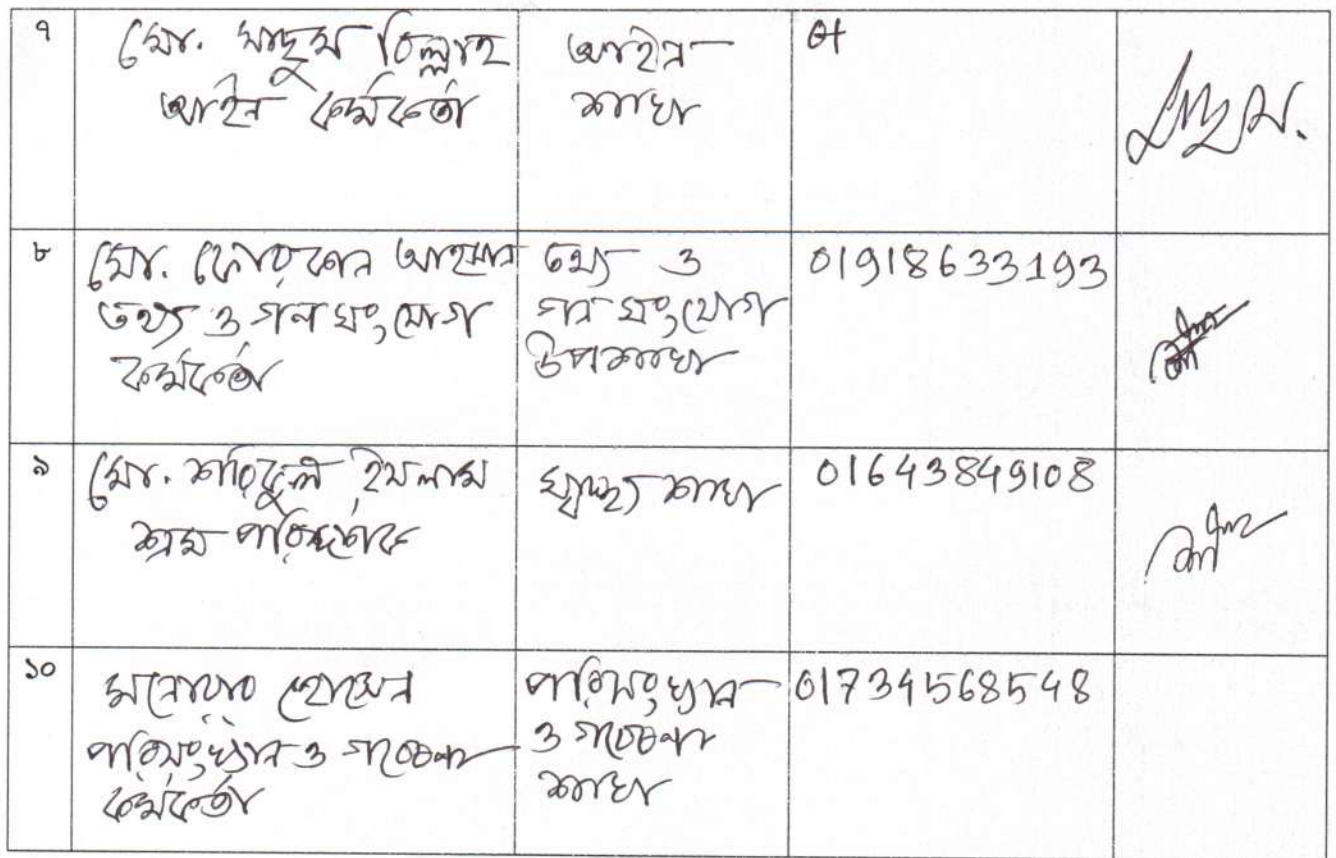 ৭
মো. মাছুম বিল্লাহ
আইন কর্মকর্তা
আইন
শাখা
৮
মো. ফোরকান আহসান
তথ্য ও গণ সংযোগ
কর্মকর্তা
তথ্য ও
গণ সংযোগ
উপশাখা
01918633193
৯
মো. শরিফুল ইসলাম
শ্রম পরিদর্শক
স্বাস্থ্য শাখা
01643849108
১০
মনোয়ার হোসেন
পরিসংখ্যান ও গবেষণা
কর্মকর্তা
পরিসংখ্যান
ও গবেষণা
শাখা
01734568548